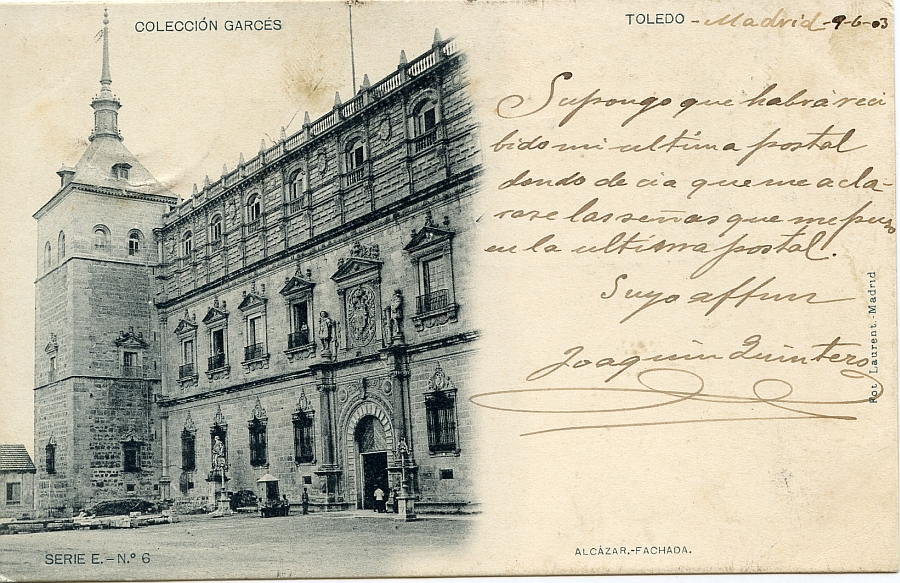 COLECCIÓN GARCÉS
TOLEDO - Madrid - 9-6-03
Supongo que habrá reci
bido mi ultima postal
donde decia que me acla-
rase las señas que me puso
en la ultima postal.
Suyo affmo
Joaquin Quintero
Fot. Laurent.-Madrid
ALCÁZAR.-FACHADA.
SERIE E.-N.º 6